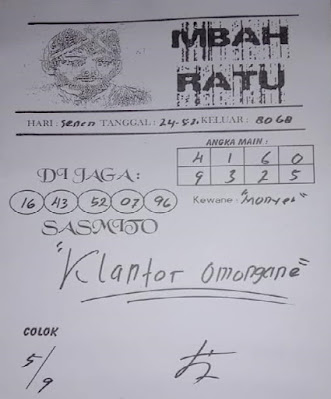 MBAH
RATU
HARI : Senen TANGGAL : 24-52. KELUAR : 8068
ANGKA MAIN :
4 1 6 0
9 3 2 5
DI JAGA :
16 43 52 07 96
Kewane : "Monyet"
SASMITO
"Klantor omongane"
COLOK
5/9